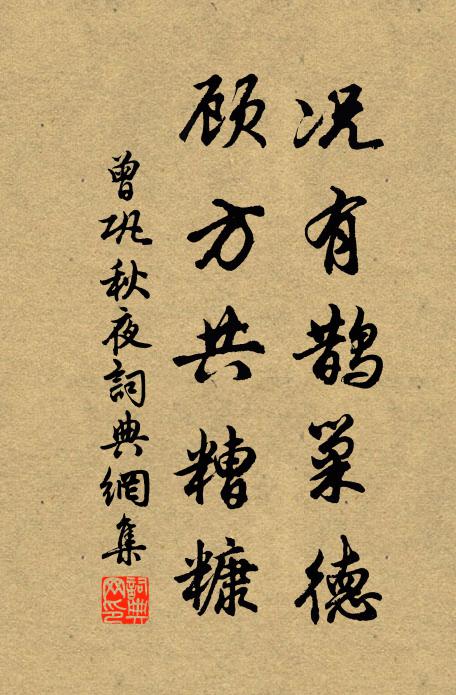 况有鹊巢德
顾方共糟糠
曾巩秋夜詞典網集
詞典网印